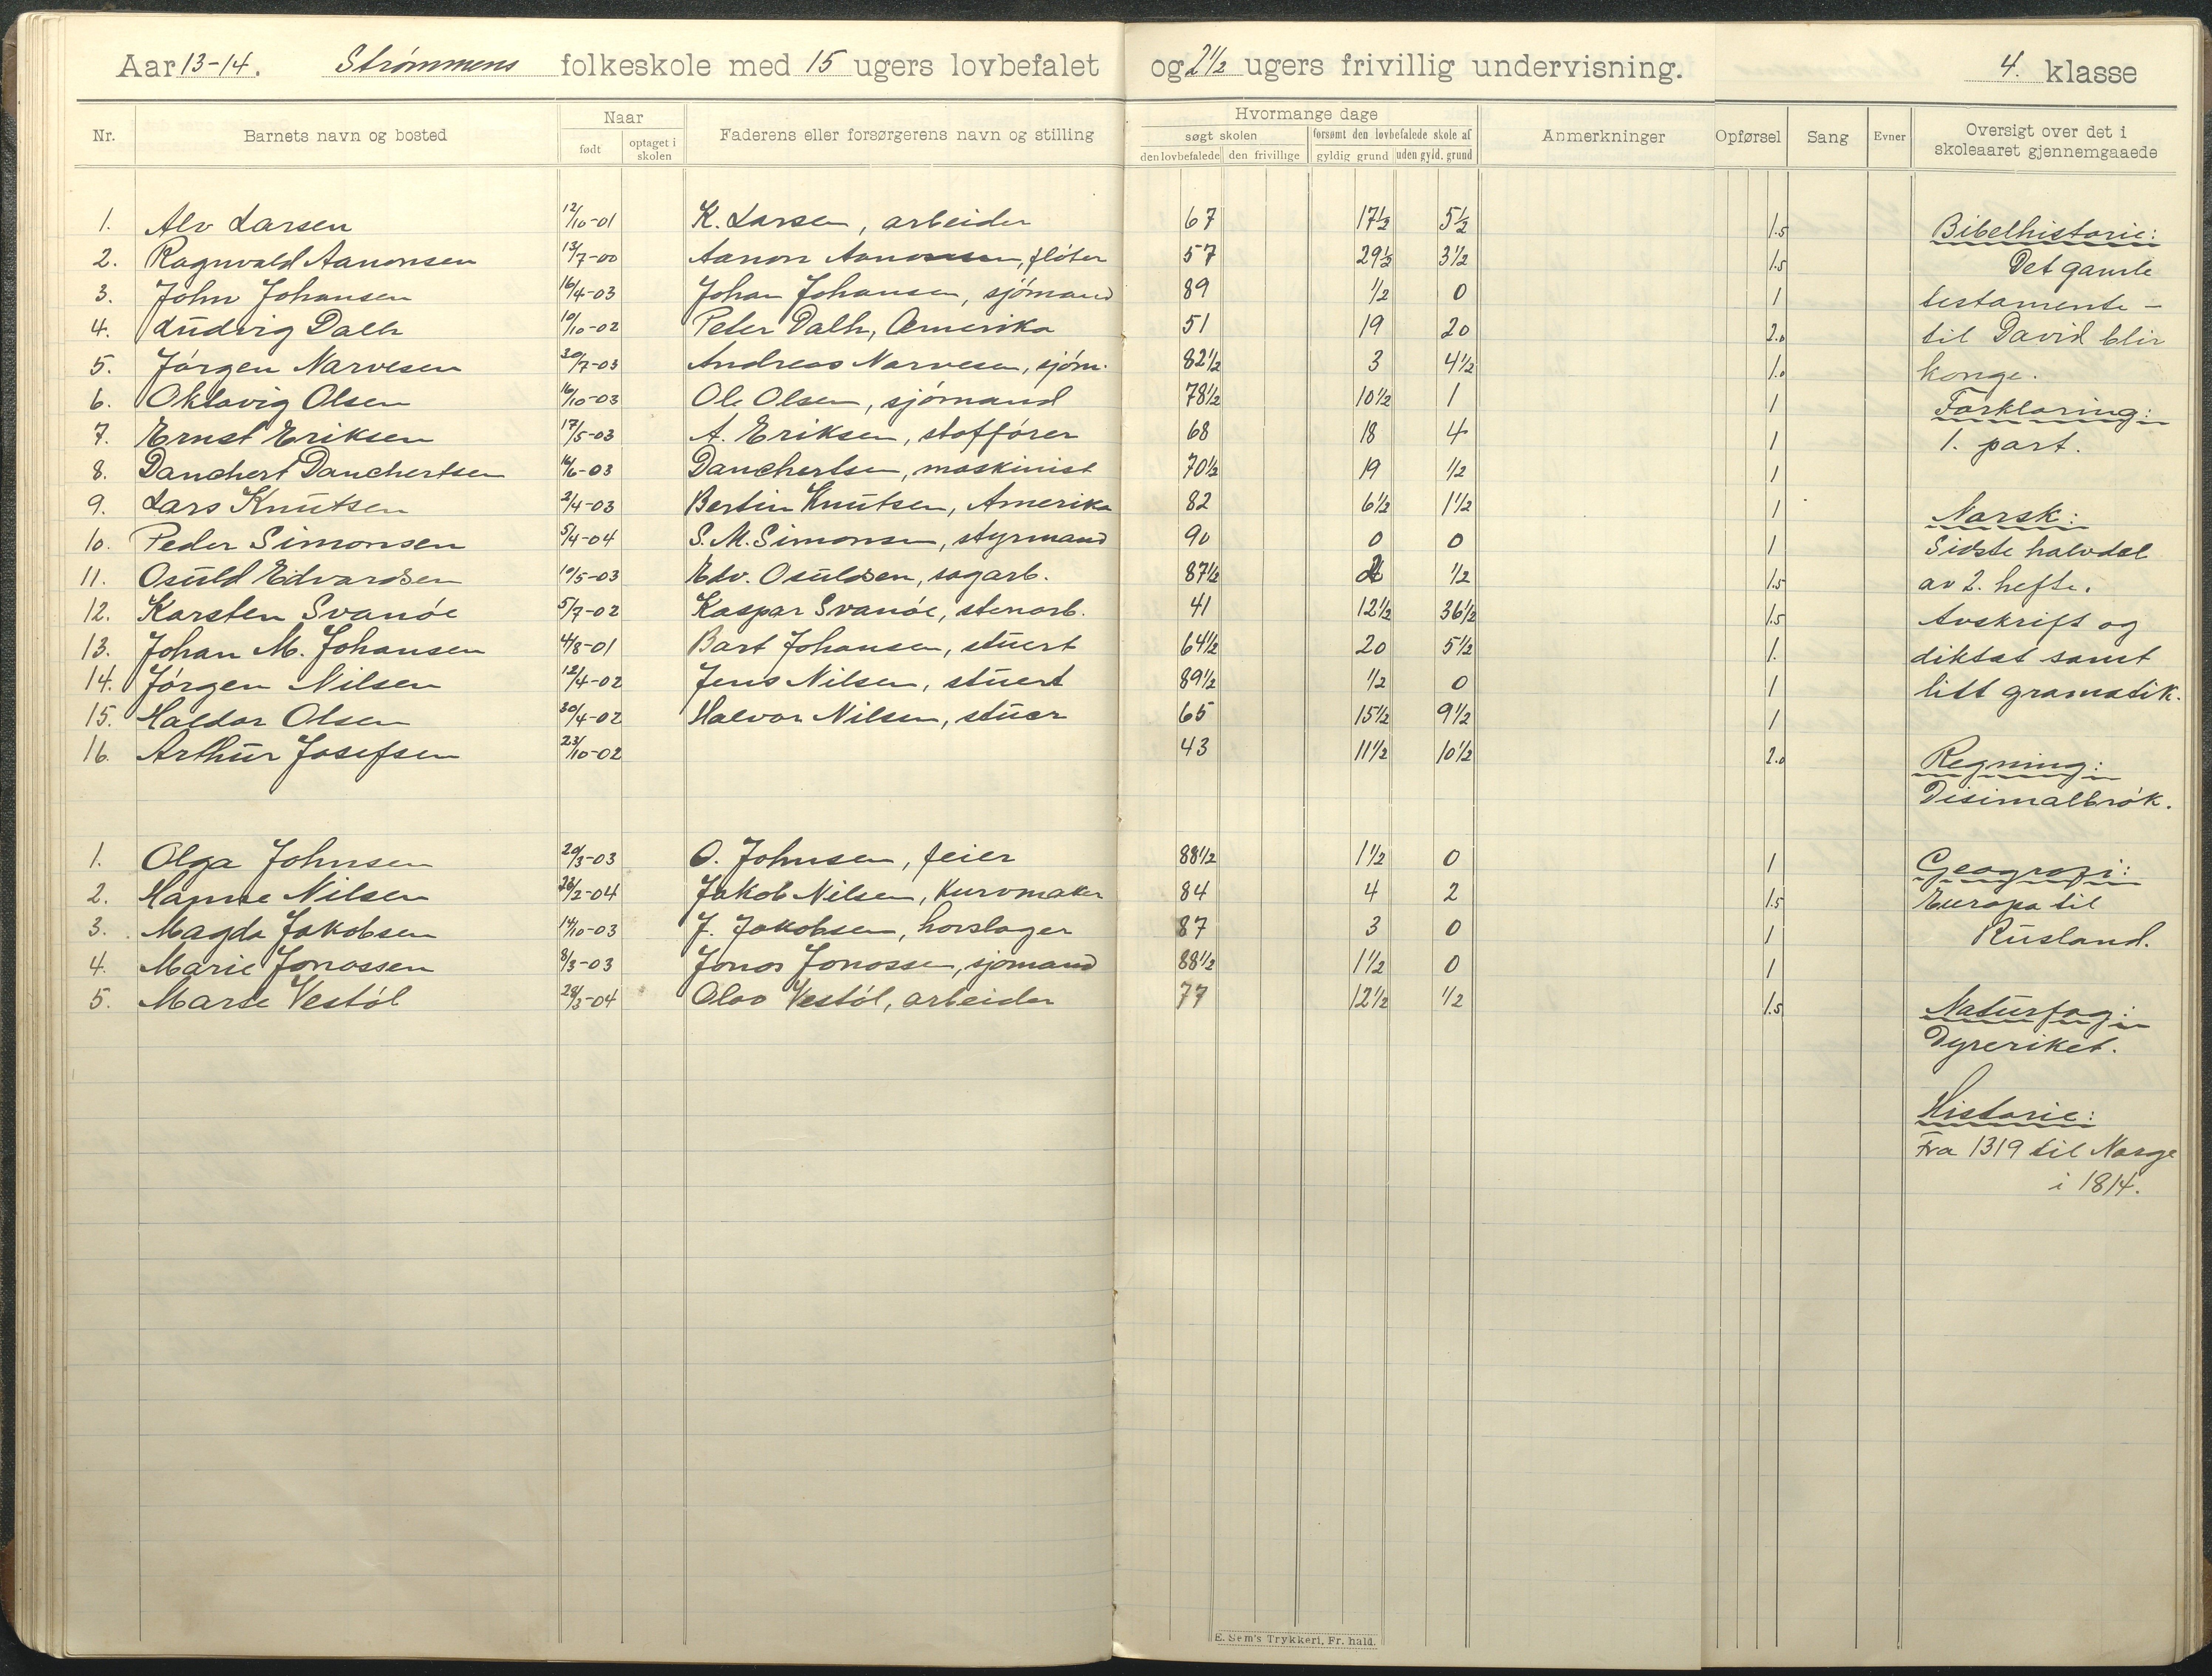 Aar 13-14. Strømmens folkeskole med 15 ugers lovbefalet og 2½ ugers frivillig undervisning. 4. klasse
Nr. Barnets navn og bosted Naar født optaget i skolen Faderens eller forsørgerens navn og stilling Hvormange dage søgt skolen den lovbefalede den frivillige forsømt den lovbefalede skole af gyldig grund uden gyld. grund Anmerkninger Opførsel Sang Evner Oversigt over det i skoleaaret gjennemgaaede
1. Alv Larsen 12/10-01 K. Larsen, arbeider 67 17½ 5½ 1.5
2. Ragnvald Aanonsen 13/7-00 Aanon Aanonsen, fløter 57 29½ 3½ 1.5
3. John Johansen 16/4-03 Johan Johansen, sjømand 89 ½ 0 1
4. Ludvig Dalh 10/10-02 Peter Dalh, Amerika 51 19 20 2.0
5. Jørgen Narvesen 20/7-03 Andreas Narvesen, sjøm. 82½ 3 4½ 1.0
6. Oktavig Olsen 16/10-03 Ole Olsen, sjømand 78½ 10½ 1 1
7. Ernst Eriksen 17/5-03 A. Eriksen, stoffører 68 18 4 1
8. Danchert Danchertsen 16/6-03 Danchertsen, maskinist 70½ 19 ½ 1
9. Lars Knutsen 2/4-03 Bertin Knutsen, Amerika 82 6½ 1½ 1
10. Peder Simonsen 5/4-04 S. M. Simonsen, styrmand 90 0 0 1
11. Osuld Edvardsen 10/5-03 Edv. Osuldsen, sagarb. 87½ 2 ½ 1.5
12. Karsten Svanøe 5/7-02 Kaspar Svanøe, stenarb. 41 12½ 36½ 1.5
13. Johan M. Johansen 4/8-01 Bart Johansen, stuert 64½ 20 5½ 1.
14. Jørgen Nilsen 12/4-02 Jens Nilsen, stuert 89½ ½ 0 1
15. Haldor Olsen 30/4-02 Halvor Nilsen, stuer 65 15½ 9½ 1
16. Arthur Josefsen 23/10-02 43 11½ 10½ 2.0
1. Olga Johnsen 20/3-03 O. Johnsen, feier 88½ 1½ 0 1
2. Hanne Nilsen /2-04 Jakob Nilsen, Kurvmaker 84 4 2 1.5
3. Magda Jakobsen 14/10-03 J. Jakobsen, hovslager 87 3 0 1
4. Marie Jonassen 8/3-03 Jonas Jonassen, sjømand 88½ 1½ 0 1
5. Marie Vestøl 28/3-04 Olav Vestøl, arbeider 77 12½ ½ 1.5
Bibelhistorie:
Det gamle
testamente -
til David blir
konge.
Forklaring:
1. part.
Norsk:
Sidste halvdel
av 2. hefte.
Avskrift og
diktat samt
litt gramatik.
Regning:
Disimalbrøk.
Geografi:
Europa til
Rusland.
Naturfag:
Dyreriket.
Historie:
Fra 1319 til Norge
i 1814.
E. Sem's Trykkeri, Fr. hald.